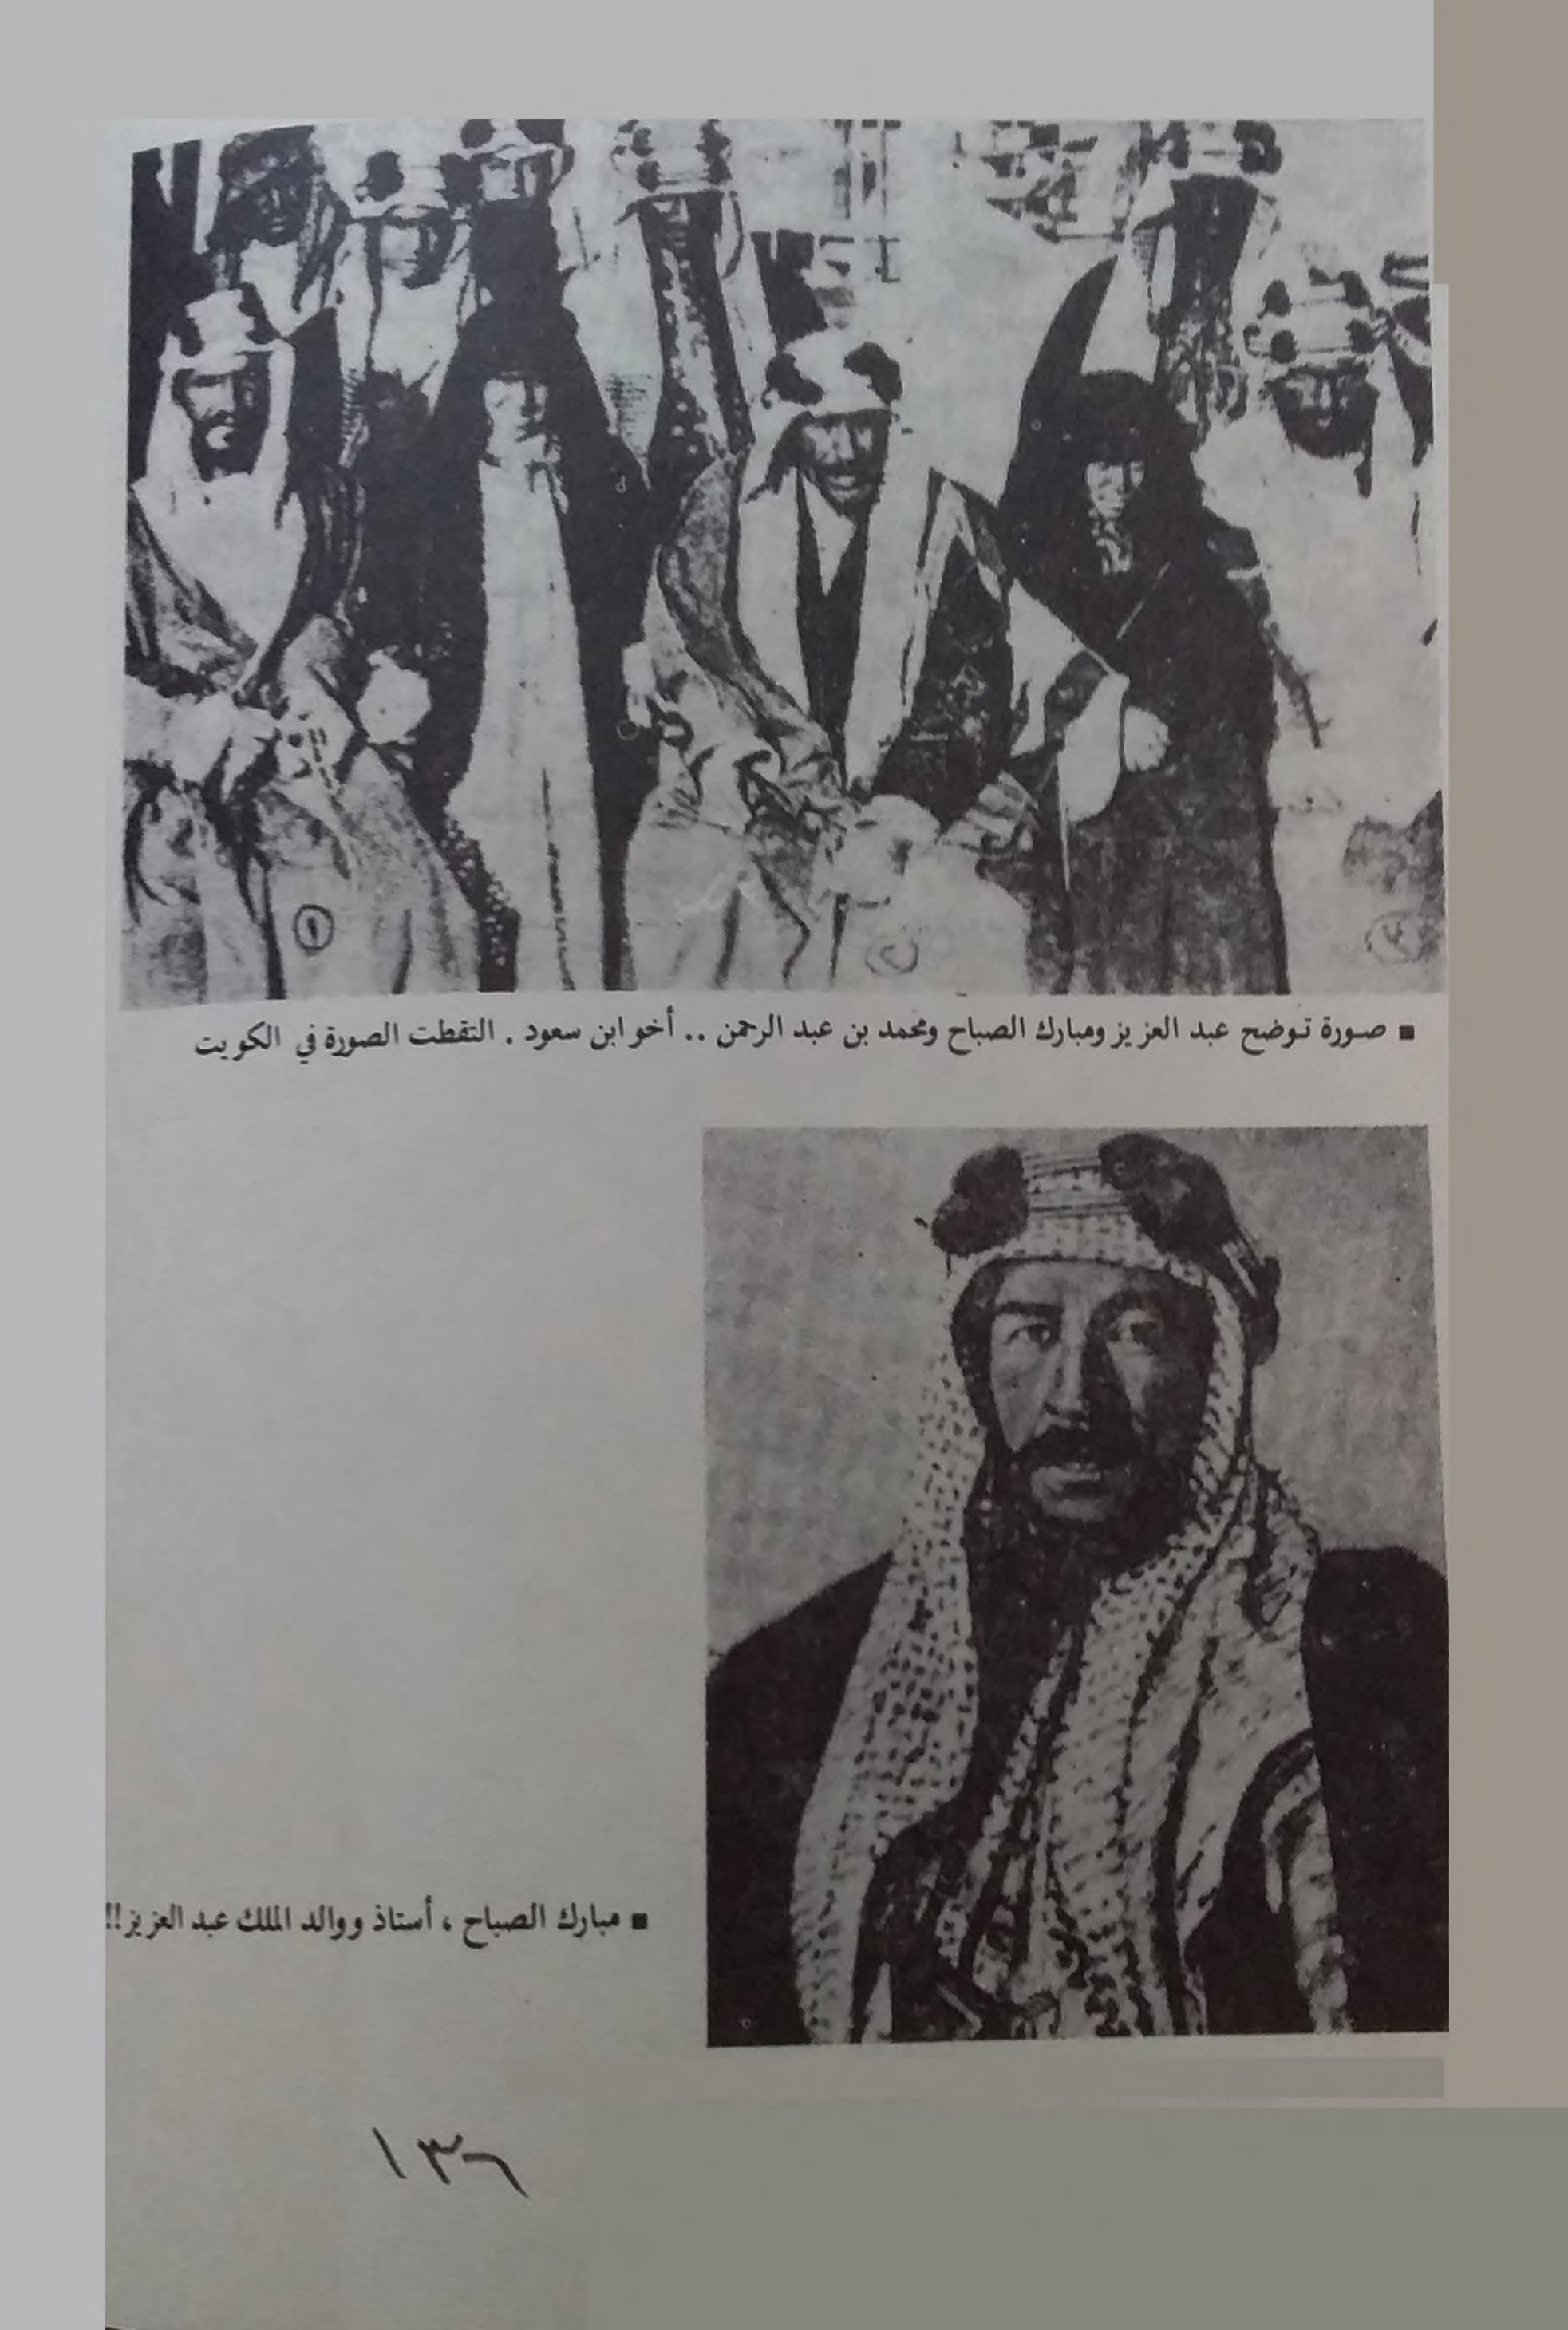 ١
٢
٣
■ صورة توضح عبد العزيز ومبارك الصباح ومحمد بن عبد الرحمن .. أخو ابن سعود . التقطت الصورة في الكويت
■ مبارك الصباح ، أستاذ ووالد الملك عبد العزيز!!
١٣٦